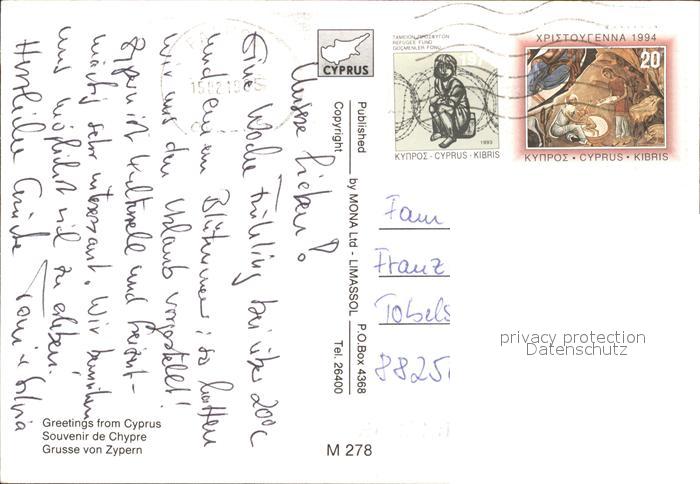 Unsere Lieben!
Eine Woche Frühling bei über 20°C
und ein Blütenmeer; so hatten
wir uns den Urlaub vorgestellt!
Zypern ist kulturell und
mäßig sehr interessant. Wir
uns möglichst viel zu erleben.
Herzliche Grüße Toni + Silvia
Greetings from Cyprus
Souvenir de Chypre
Grusse von Zypern
CYPRUS
Published by MONA Ltd - LIMASSOL P.O.Box 4368
Copyright Tel. 26400
M 278
ΤΑΜΕΙΟΝ ΠΡΟΣΦΥΓΩΝ
REFUGEE FUND
GÖÇMENLER FONU
1993
ΚΥΠΡΟΣ - CYPRUS - KIBRIS
ΧΡΙΣΤΟΥΓΕΝΝΑ 1994
20c
ΚΥΠΡΟΣ • CYPRUS • KIBRIS
Fam
Franz
Tobels
8825
privacy protection
Datenschutz